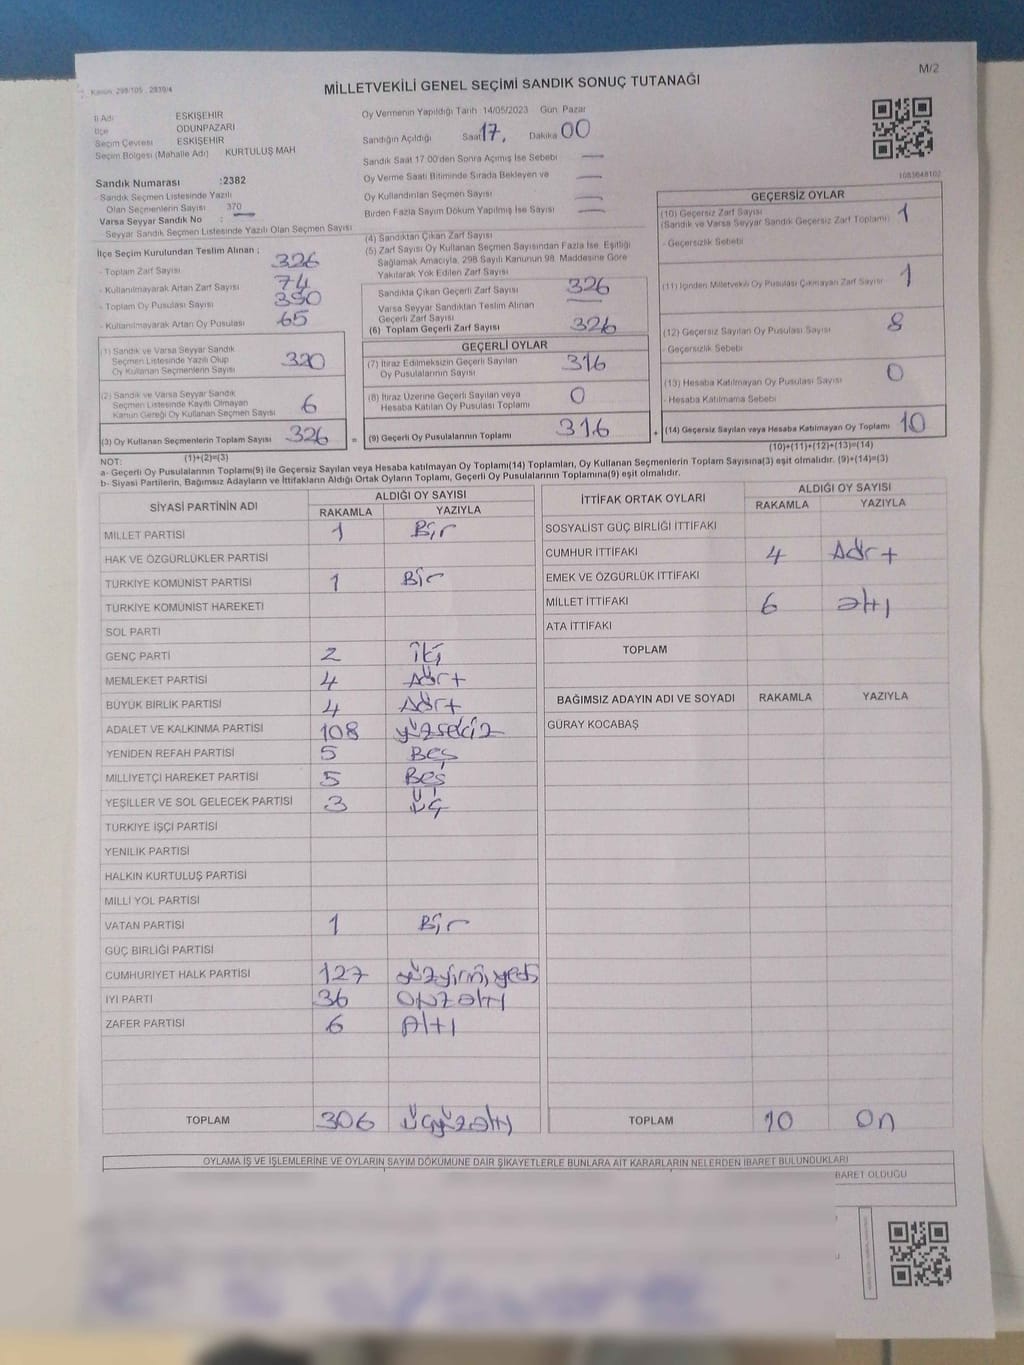 M/2
MİLLETVEKİLİ GENEL SEÇİMİ SANDIK SONUÇ TUTANAĞI
Kanun: 298/105 , 2839/4
İl Adı ESKİŞEHİR
İlçe ODUNPAZARI
Seçim Çevresi ESKİŞEHİR
Seçim Bölgesi (Mahalle Adı) KURTULUŞ MAH
Sandık Numarası :2382
Sandık Seçmen Listesinde Yazılı
Olan Seçmenlerin Sayısı 370
Varsa Seyyar Sandık No :
Seyyar Sandık Seçmen Listesinde Yazılı Olan Seçmen Sayısı
Oy Vermenin Yapıldığı Tarih 14/05/2023 Gün Pazar
Sandığın Açıldığı Saat 17, Dakika 00
Sandık Saat 17 00'den Sonra Açımış İse Sebebi —
Oy Verme Saati Bitiminde Sırada Bekleyen ve
Oy Kullandırılan Seçmen Sayısı —
Birden Fazla Sayım Döküm Yapılmış İse Sayısı —
1083648102
İlçe Seçim Kurulundan Teslim Alınan ;
- Toplam Zarf Sayısı 326
- Kullanılmayarak Artan Zarf Sayısı 74
- Toplam Oy Pusulası Sayısı 390
- Kullanılmayarak Artan Oy Pusulası 65
(1) Sandık ve Varsa Seyyar Sandık
Seçmen Listesinde Yazılı Olup
Oy Kullanan Seçmenlerin Sayısı 320
(2) Sandık ve Varsa Seyyar Sandık
Seçmen Listesinde Kayıtlı Olmayan
Kanun Gereği Oy Kullanan Seçmen Sayısı 6
(3) Oy Kullanan Seçmenlerin Toplam Sayısı 326 =
(1)+(2)=(3)
(4) Sandıktan Çıkan Zarf Sayısı
(5) Zarf Sayısı Oy Kullanan Seçmen Sayısından Fazla İse, Eşitliği
Sağlamak Amacıyla, 298 Sayılı Kanunun 98. Maddesine Göre
Yakılarak Yok Edilen Zarf Sayısı
Sandıkta Çıkan Geçerli Zarf Sayısı 326
Varsa Seyyar Sandıktan Teslim Alınan
Geçerli Zarf Sayısı —
(6) Toplam Geçerli Zarf Sayısı 326
GEÇERLİ OYLAR
(7) İtiraz Edilmeksizin Geçerli Sayılan
Oy Pusulalarının Sayısı 316
(8) İtiraz Üzerine Geçerli Sayılan veya
Hesaba Katılan Oy Pusulası Toplamı 0
(9) Geçerli Oy Pusulalarının Toplamı 316 +
GEÇERSİZ OYLAR
(10) Geçersiz Zarf Sayısı
(Sandık ve Varsa Seyyar Sandık Geçersiz Zarf Toplamı) 1
- Geçersizlik Sebebi
(11) İçinden Milletvekili Oy Pusulası Çıkmayan Zarf Sayısı 1
(12) Geçersiz Sayılan Oy Pusulası Sayısı 8
- Geçersizlik Sebebi
(13) Hesaba Katılmayan Oy Pusulası Sayısı 0
- Hesaba Katılmama Sebebi
(14) Geçersiz Sayılan veya Hesaba Katılmayan Oy Toplamı 10
(10)+(11)+(12)+(13)=(14)
NOT:
a- Geçerli Oy Pusulalarının Toplamı(9) ile Geçersiz Sayılan veya Hesaba katılmayan Oy Toplamı(14) Toplamları, Oy Kullanan Seçmenlerin Toplam Sayısına(3) eşit olmalıdır. (9)+(14)=(3)
b- Siyasi Partilerin, Bağımsız Adayların ve İttifakların Aldığı Ortak Oyların Toplamı, Geçerli Oy Pusulalarının Toplamına(9) eşit olmalıdır.
SİYASİ PARTİNİN ADI ALDIĞI OY SAYISI
RAKAMLA YAZIYLA
MİLLET PARTİSİ 1 Bir
HAK VE ÖZGÜRLÜKLER PARTİSİ
TÜRKİYE KOMÜNİST PARTİSİ 1 Bir
TÜRKİYE KOMÜNİST HAREKETİ
SOL PARTİ
GENÇ PARTİ 2 İki
MEMLEKET PARTİSİ 4 Dört
BÜYÜK BİRLİK PARTİSİ 4 Dört
ADALET VE KALKINMA PARTİSİ 108 yüzsekiz
YENİDEN REFAH PARTİSİ 5 Beş
MİLLİYETÇİ HAREKET PARTİSİ 5 Beş
YEŞİLLER VE SOL GELECEK PARTİSİ 3 Üç
TÜRKİYE İŞÇİ PARTİSİ
YENİLİK PARTİSİ
HALKIN KURTULUŞ PARTİSİ
MİLLİ YOL PARTİSİ
VATAN PARTİSİ 1 Bir
GÜÇ BİRLİĞİ PARTİSİ
CUMHURİYET HALK PARTİSİ 127 yüzyirmiyedi
İYİ PARTİ 36 otuzaltı
ZAFER PARTİSİ 6 Altı
TOPLAM 306 üçyüzaltı
İTTİFAK ORTAK OYLARI ALDIĞI OY SAYISI
RAKAMLA YAZIYLA
SOSYALİST GÜÇ BİRLİĞİ İTTİFAKI
CUMHUR İTTİFAKI 4 Dört
EMEK VE ÖZGÜRLÜK İTTİFAKI
MİLLET İTTİFAKI 6 altı
ATA İTTİFAKI
TOPLAM
BAĞIMSIZ ADAYIN ADI VE SOYADI RAKAMLA YAZIYLA
GÜRAY KOCABAŞ
TOPLAM 10 On
OYLAMA İŞ VE İŞLEMLERİNE VE OYLARIN SAYIM DÖKÜMÜNE DAİR ŞİKAYETLERLE BUNLARA AİT KARARLARIN NELERDEN İBARET BULUNDUKLARI
BARET OLDUĞU